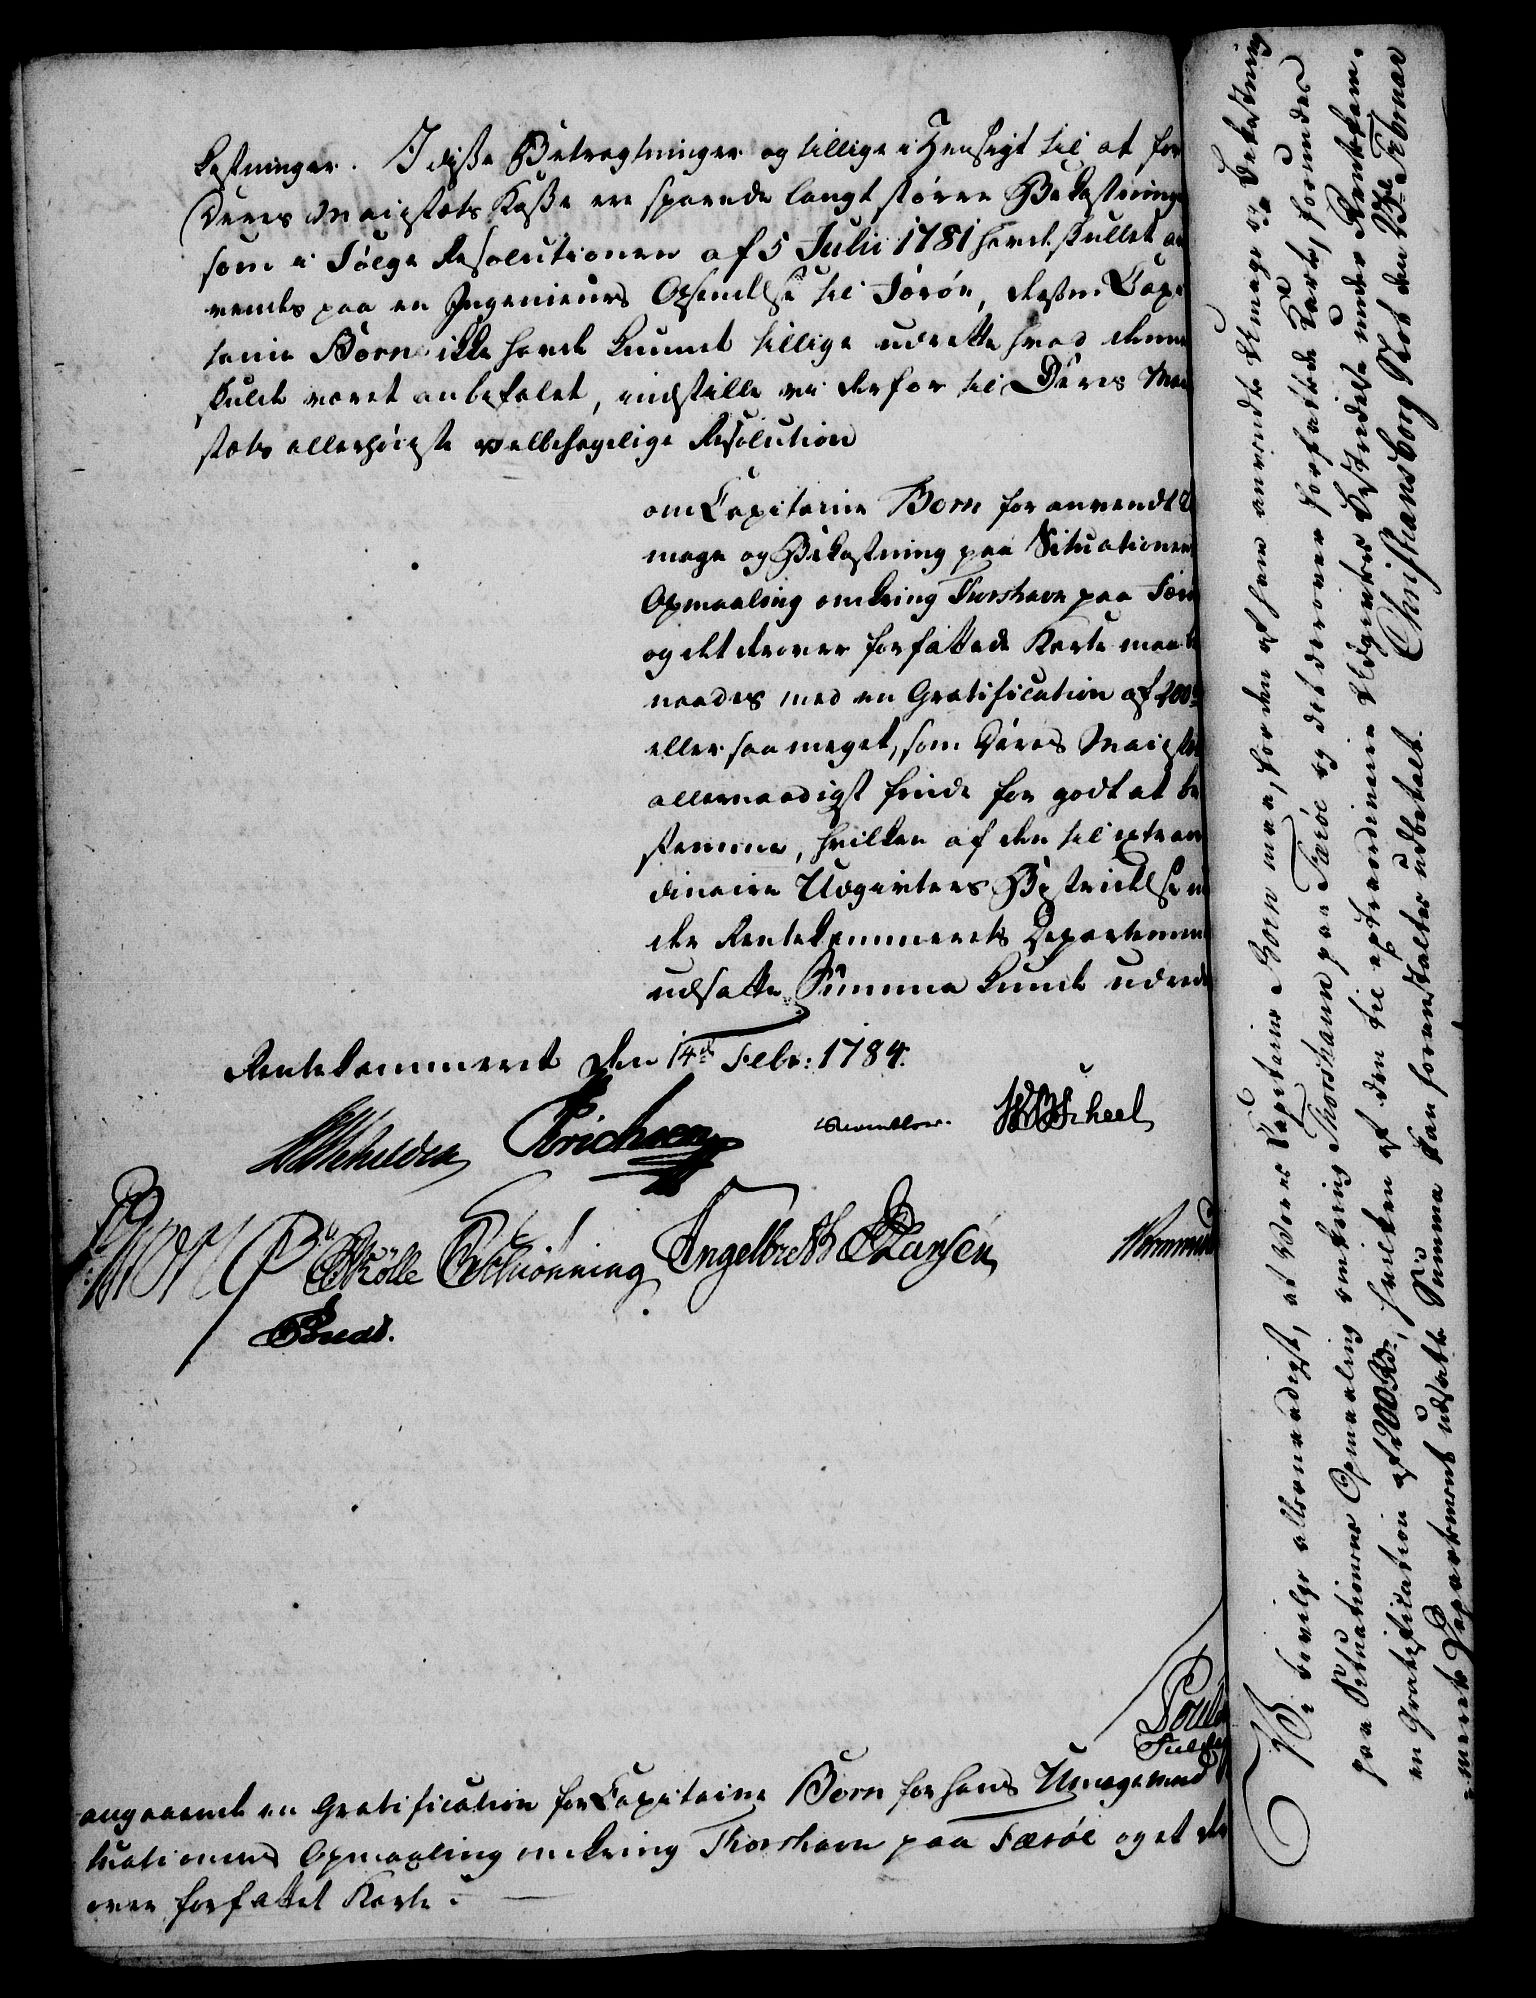 kostninger. I disse Betragtninger og tillige i Hensigt til at for
Deres Majestæts Kasse er sparede langt større Bekostninger
som i Følge Resolutionen af 5 Julii 1781 havde skullet an
vendes paa en Ingenieurs Opsendelse til Færøe, dersom Capi
taine Born ikke havde kundet tillige udrette hvad denne
skulde været anbefalet, indstille vi derfor til Deres Maj
stæts allerhøieste velbehagelige Resolution
om Capitaine Born for anvendt U
mage og Bekostning paa Situationens
Opmaaling omkring Thorshavn paa Færø
og det derover forfattede Karte maa be
naades med en Gratification af 200 rd
eller saa meget, som Deres Majestæt
allernaadigst finde for godt at be
stemme, hvilken af den til extraor
dinaire Udgivters Bestridelse un
der Rentekammerets Departement
udsatte Summa kunde udrede
Rentekammeret den 14de Febr: 1784.
Schilden Erichsen Reventlow. Scheel
Horn Rølle Schiønning Engelbreth Hansen Wormsk
angaaende en Gratification for Capitaine Born for hans Umage med
tuationens Opmaaling omkring Thorshavn paa Færøe og et der
over forfattet Karte.
Vi bevilge allernaadigst, at Vores Capitaine Born maa, for den af ham anvendte Umage og Bekostning
paa Situationens Opmaaling omkring Thorshavn paa Færøe og det derover forfattede Kart, forundes
en Gratification af 200 Rd., hvilken af den til extraordinaire Udgivters Bestridelse under Rentekam-
merets Departement udsatte Summa kan foranstaltes udbetalt.
Christiansborg Slot den 23de Februar